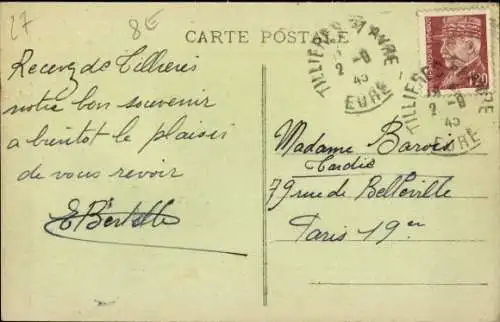 27
8€
CARTE POSTALE
TILLIERES S/ AVRE
2 -9
43
EURE
TILLIERES
AVRE
2 -9
43
EURE
1,20
Recevez de Tillieres
notre bon souvenir
a bientot le plaisir
de vous revoir
Madame Barois
79 rue de Belleville
Paris 19er